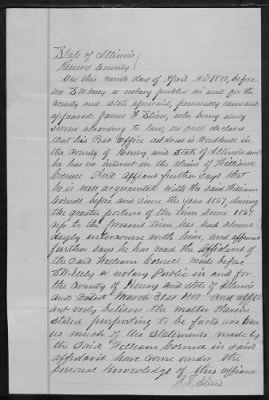 State of Illinois
Henry County
On this ninth day of April AD 1890, before
me a notary public in and for the
County and State aforesaid, personally came and
appeared James F. who being duly
sworn according to law, on oath declares
that his Post Office address is in
the County of Henry and State of Illinois and
he has no interest in the claim of William
And affiant further says that
he is well acquainted with the said William
before and since the year 1867, during
the greater portion of the time since 1867
up to the present time has had almost
dayly intercourse with him, and affiant
further says he has read the affidavit of
the said William made before
a notary Public in and for
the County of Henry and State of Illinois
and dated March 31st 1890 and affi-
ant verily believes the matter therein
stated purporting to be facts are true
as much of the statements made
by the said William in said
affidavit have come under the
personal knowledge of this affiant